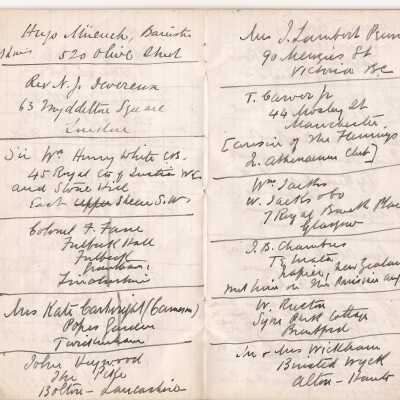 Hugo Muench, Barrister
St Louis 520 Olive Street
Rev N. J. Devereux
63 Myddelton Square
London
Sir Wm Henry White CB.
45 Royal Cts of Justice W.C.
and Stone Hill
East Upper Sheen S.W.
Colonel F. Fane
Fulbeck Hall
Fulbeck
Grantham,
Lincolnshire
Mrs Kate Cartwright (Cameron)
Popes Garden
Twickenham
John Heywood
The Pike
Bolton - Lancashire
Mrs J. Lambert
90 Menzies St
Victoria B.C
T. Carver Jr
44 Mosley St
Manchester.
[cousin of The Flemings
Athenaeum Club]
Wm Jacks
W. Jacks & Co
7 Royal Bank Place
Glasgow
J. B. Chambers
Napier, New Zealand
met him on the
W. Ruston
Syon Park Cottage
Brentford
Mr & Mrs Wickham
Binsted Wyck
Alton - Hants